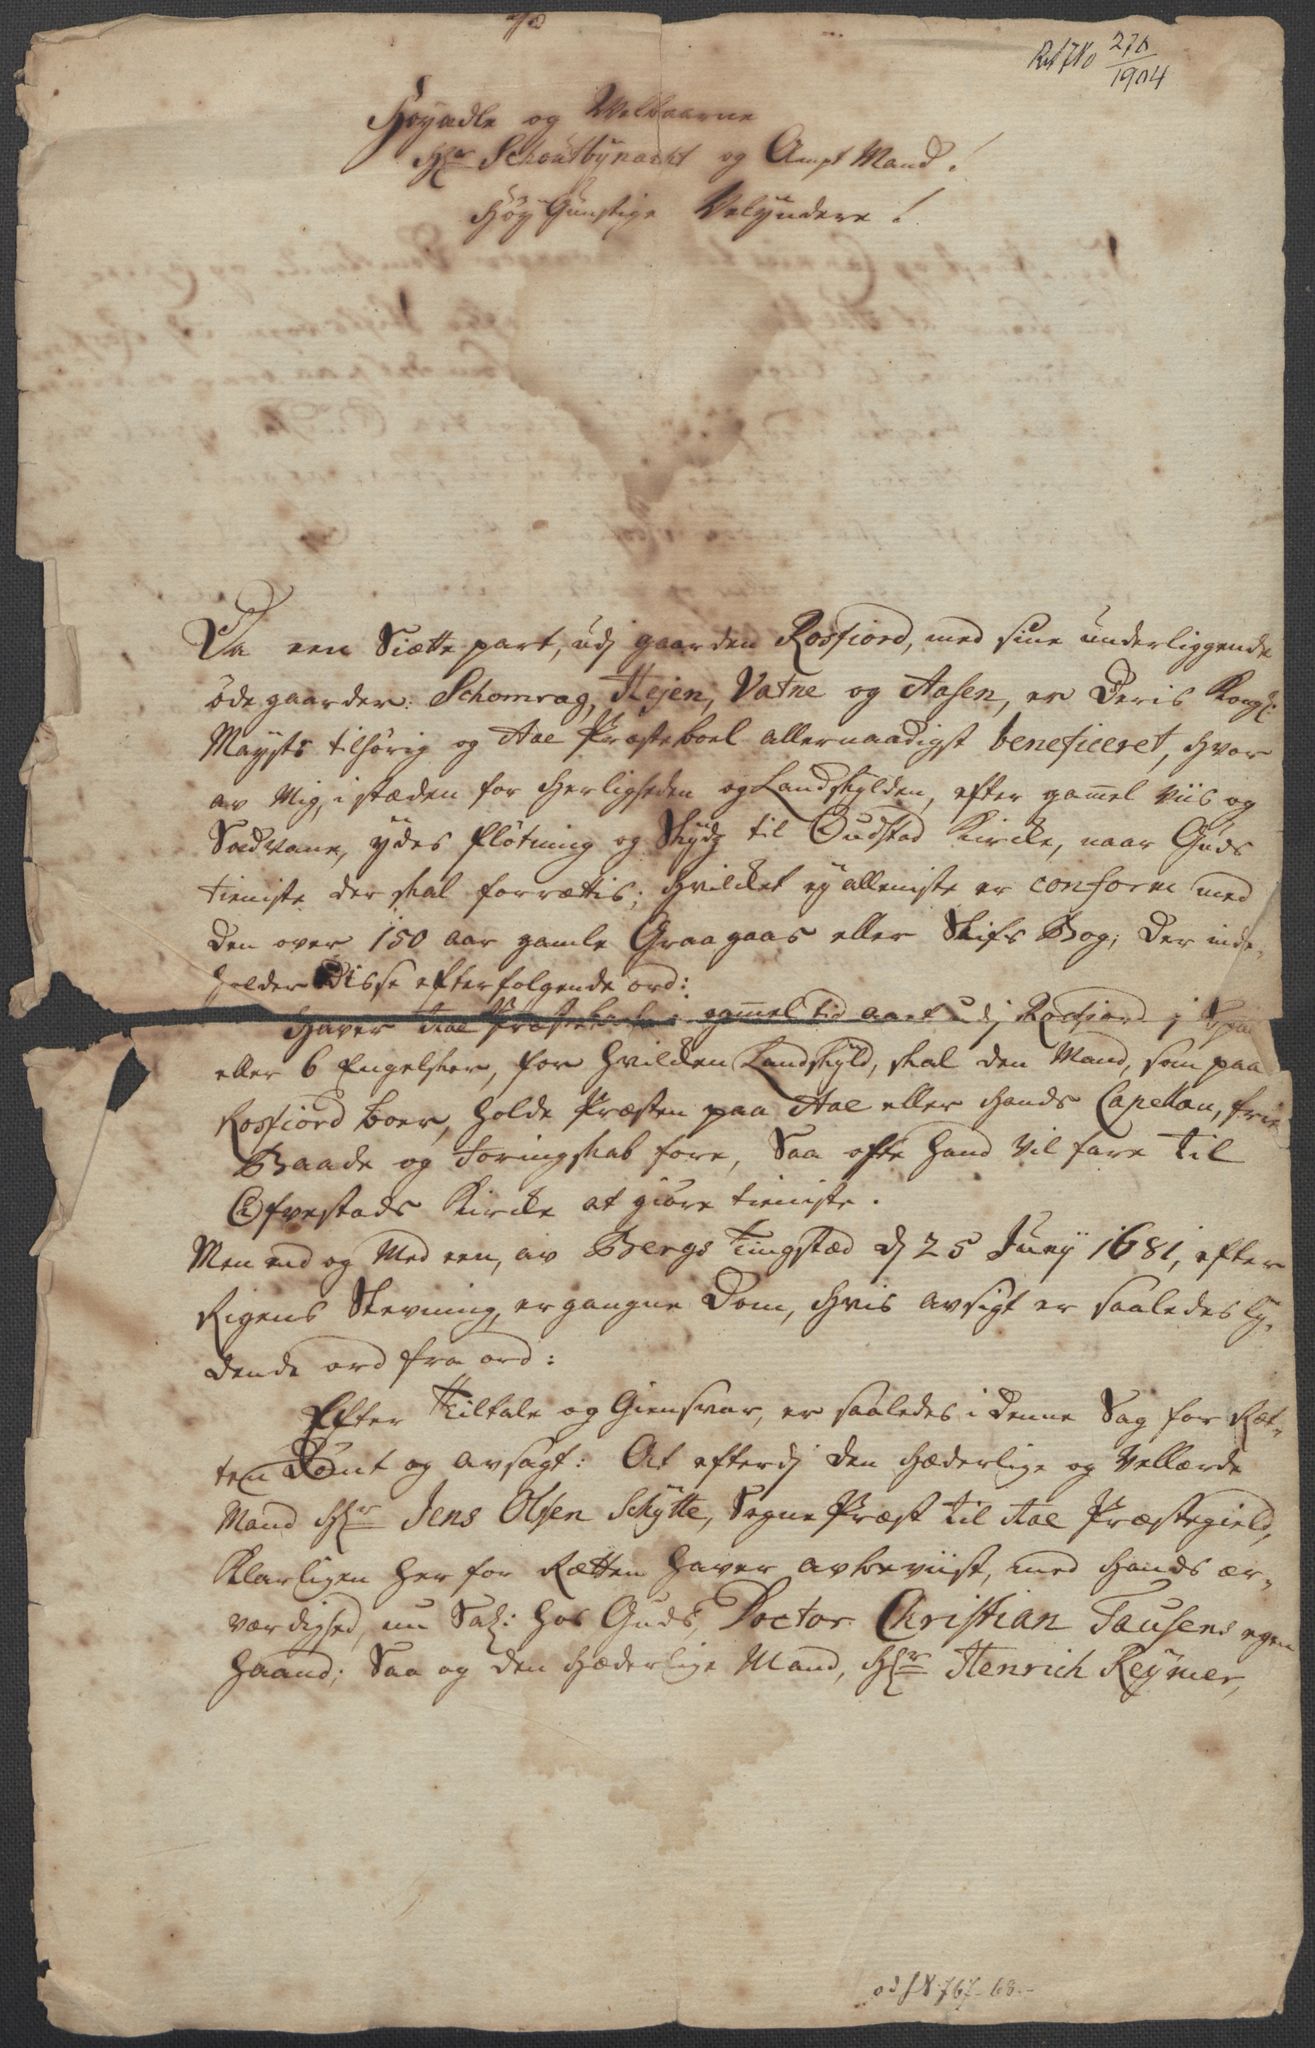 270
1904
Høyædle og Velbaarne
Hr Schoutbynacht og Ampt Mand!
Høy Gunstige Velyndere!
Da een Siette part, udj gaarden Rosfiord, med sine underliggende
öde gaarder: Schomrag, Hejen, Vatne og Aasen, er Deris Kongl:
Mayets tilhörig og Aae Præsteboel allernaadigst beneficeret, hvor
av Mig, i stæden for Herligheden og Landskylden, efter gammel Viis og
Sædvane, ydes flötning og Skydz til Oudstad Kircke, naar Guds
tieniste der skal forrættis; hvilcket ey alleniste er conform med
den over 150 aar gamle Graagaas eller Stifs Bog; der inde-
holder disse efterfolgende ord:
Haver Aae Præste gammel tid aaet udj Rosfiord j
eller 6 Engelsker, for hvilcken Landskyld, skal den Mand, som paa
Rosfiord boer, holde Præsten paa Aae eller hands Capellan, frie
Baade og föringskab fore, Saa ofte hand vil fare til
Ofvestads Kircke at giöre tieniste.
Men end og Med een, av Bergs Tingstæd dj 25 Junij 1681, efter
Rigens Stevning, ergangne Dom, hvis avsigt er saaledes ly-
dende ord fra ord:
Efter Tiltale og Giensvar, er saaledes i denne Sag for Ræt-
ten Dömt og avsagt: At efterdj den Hæderlige og Vellærde
Mand Hr Jens Olsen Schytte, Sogne Præst til Aae Præstegield,
Klarligen her for Rætten haver avbeviist, med Hands ær-
værdighed, nu Sal: hos Guds, Doctor Christian Tausens egen
haand; Saa og den Hæderlige Mand, Hr Henrich Reymer,
767-68